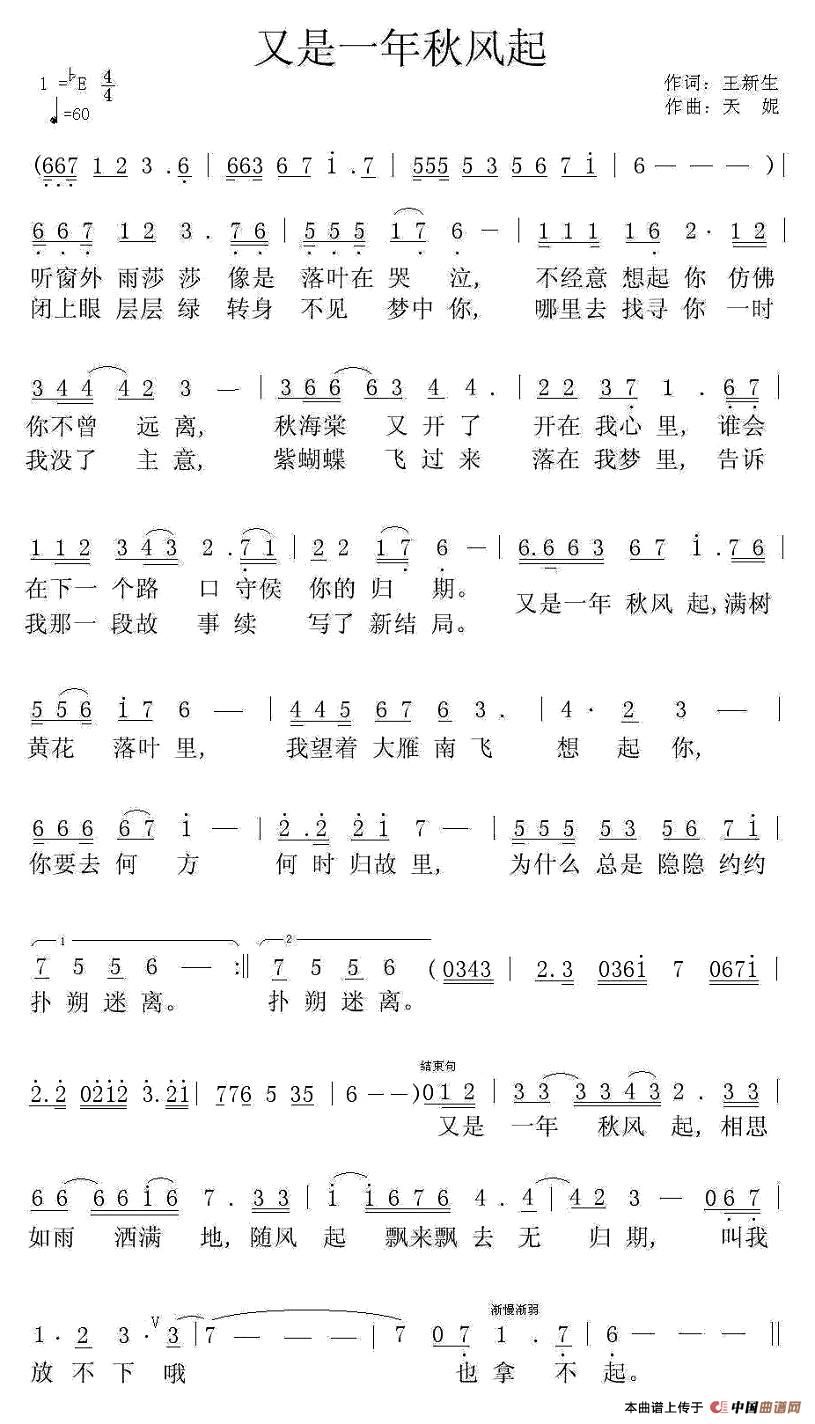 又是一年秋风起
1=♭E 4/4
作词：王新生
♩=60
作曲：天 妮
(667 1 2 3 .6 | 663 6 7 i .7 | 555 5 3 5 6 7 i | 6 — — — )|
6 6 7 1 2 3 . 7 6 | 5 5 5 1 7 6 — | 1 1 1 1 6 2 · 1 2 |
听窗外 雨莎 莎 像是 落叶在 哭 泣, 不经意 想起 你 仿佛
闭上眼 层层 绿 转身 不见 梦中 你, 哪里去 找寻 你 一时
3 4 4 4 2 3 — | 3 6 6 6 3 4 4 . | 2 2 3 7 1 . 6 7 |
你不曾 远 离, 秋海棠 又 开 了 开在 我心 里, 谁会
我没了 主 意, 紫蝴蝶 飞 过 来 落在 我梦 里, 告诉
1 1 2 3 4 3 2 . 7 1 | 2 2 1 7 6 — | 6.6 6 3 6 7 i .7 6 |
在下一 个路 口 守侯 你的 归 期。
又是一年 秋风 起,满树
我那一 段故 事 续 写了 新结 局。
5 5 6 i 7 6 — | 4 4 5 6 7 6 3 . | 4 · 2 3 — |
黄花 落叶 里, 我望着 大雁 南 飞 想 起 你,
6 6 6 6 7 i — | 2 . 2 2 i 7 — | 5 5 5 5 3 5 6 7 i |
你要去 何 方 何 时 归故 里, 为什么 总是 隐隐 约约
1
2
7 5 5 6 — :‖ 7 5 5 6 (0343 | 2.3 036i 7 067i |
扑 朔 迷 离。 扑 朔 迷 离。
结束句
2.2 02i2 3.2i | 776 5 35 | 6 — — ) 0 1 2 | 3 3 3 3 4 3 2 . 3 3 |
又是 一年 秋风 起, 相思
6 6 6 6 i 6 7 . 3 3 | i i 6 7 6 4 . 4 | 4 2 3 — 0 6 7 |
如雨 洒满 地, 随风 起 飘来飘 去 无 归 期, 叫我
渐慢渐弱
1 · 2 3 · V 3 | 7 — — — | 7 0 7 1 . 7 | 6 — — ‖
放 不 下 哦 也 拿 不 起。
本曲谱上传于 中国曲谱网